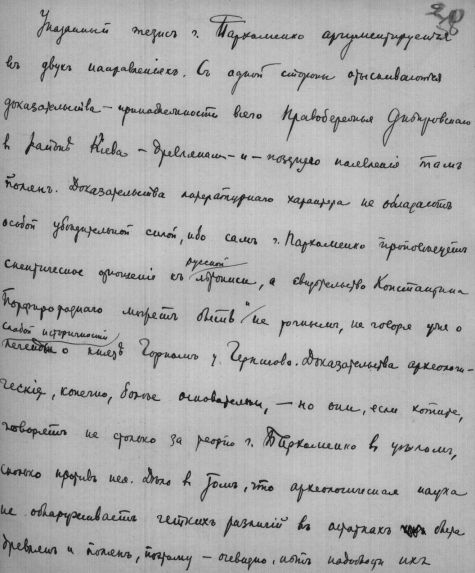 Указанный тезисъ г. Пархоменко аргументируется
въ двухъ направленіяхъ. Съ одной стороны отыскиваются
доказательства – принадлежности всего Правобережья Днѣпровскаго
въ районѣ Кіева – древлянамъ – и – поздняго появленія тамъ
полянъ. Доказательства литературнаго характера не обладаютъ
особой убѣдительной силой, ибо самъ г. Пархоменко проповѣдуетъ
русской
скептическое отношеніе къ лѣтописи, а свидѣтельство Константина
Порфиророднаго можетъ быть не не говоря уже о
слабой историчности
легенды о князѣ Черномъ у Чернигово. Доказательства археологи-
ческія, конечно, болѣе основательны, – но они, если хотите,
говорятъ не столько за теорію г. Пархоменко въ цѣломъ,
сколько противъ нея. Дѣло въ томъ, что археологическая наука
не обнаруживаетъ четкихъ различій въ остаткахъ быта
древлянъ и полянъ, поэтому – очевидно, нѣтъ надобности ихъ